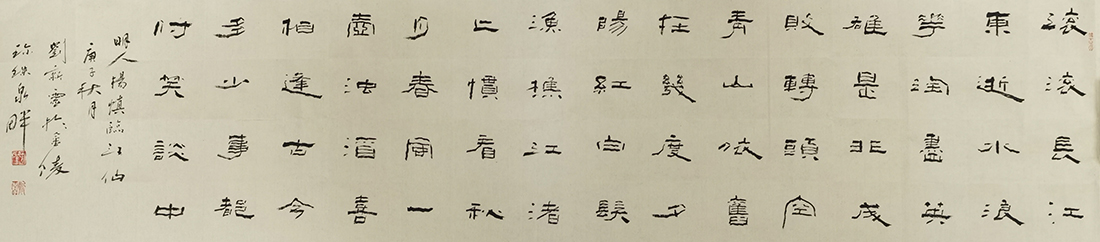 滚滚長江
東逝水浪
華淘盡英
雄是非成
敗轉頭空
青山依舊
在幾度夕
陽紅白髮
漁樵江渚
上慣看秋
月春風一
壺濁酒喜
相逢古今
多少事都
付笑談中
明人楊慎臨江仙
庚子秋月
劉新雲於金陵
珍珠泉畔